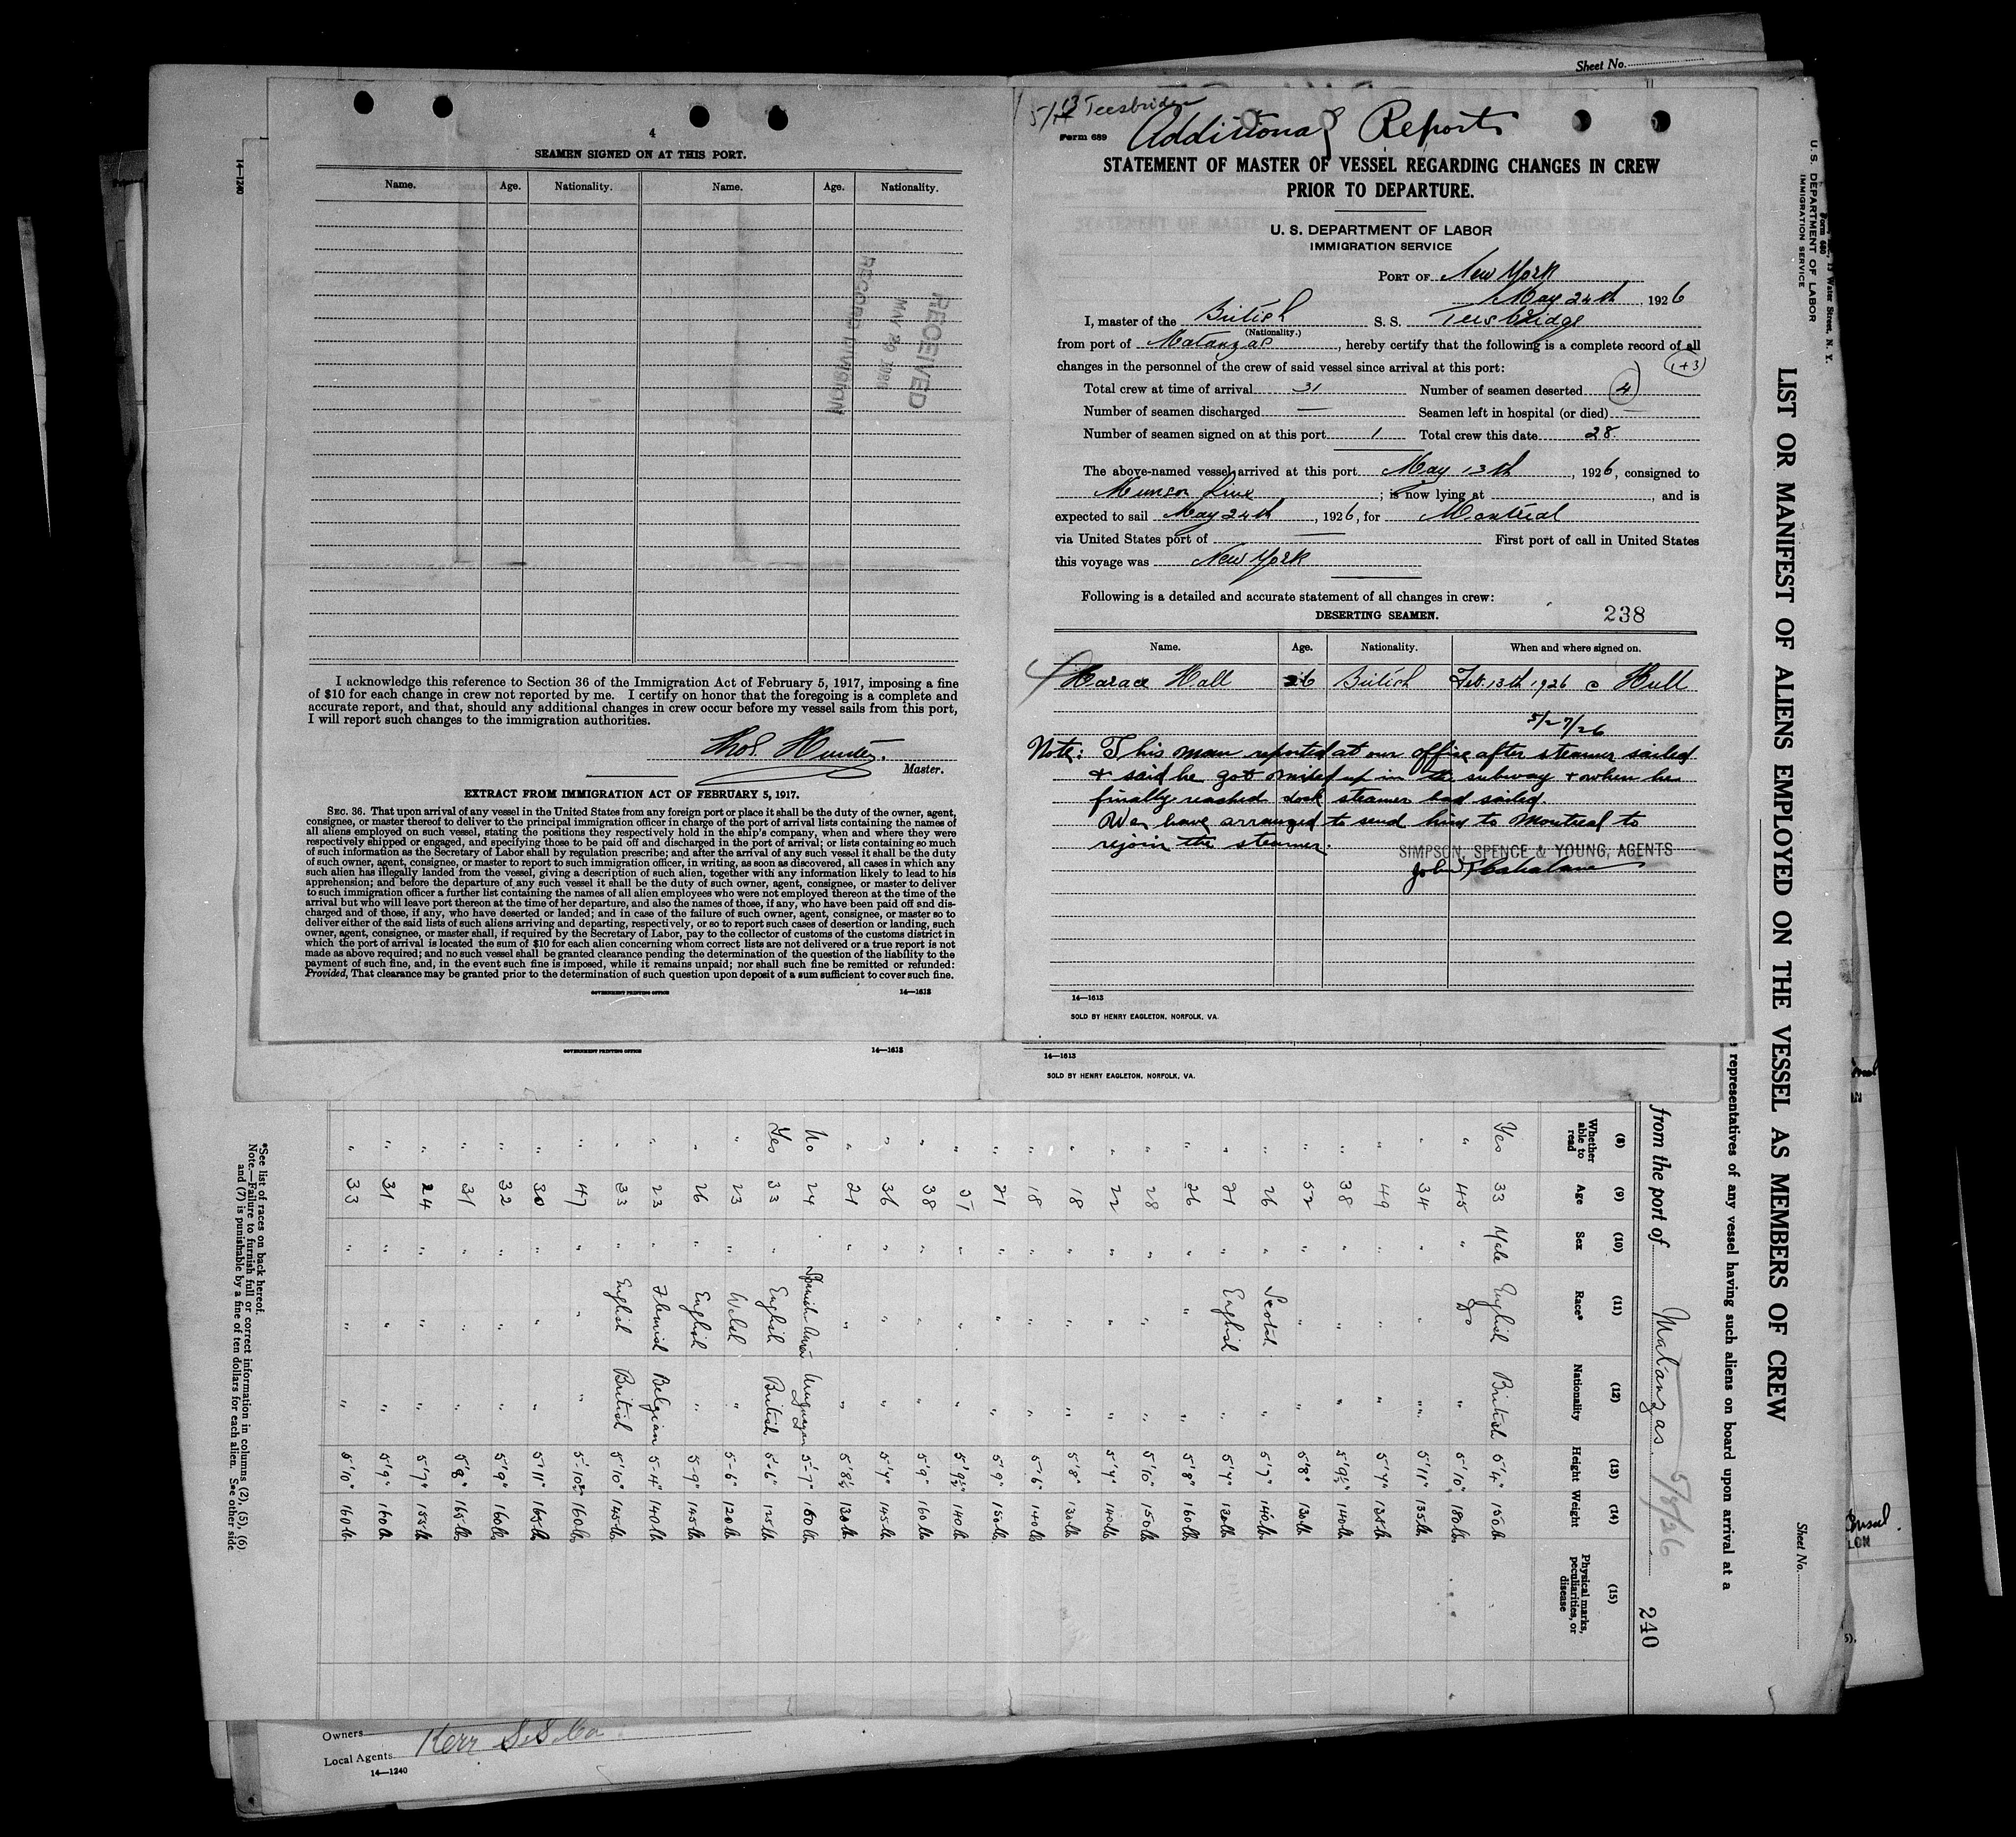 Sheet No.
4
SEAMEN SIGNED ON AT THIS PORT.
Name. Age. Nationality. Name. Age. Nationality.
RECEIVED
MAY 29 1926
RECORD DIVISION
I acknowledge this reference to Section 36 of the Immigration Act of February 5, 1917, imposing a fine
of $10 for each change in crew not reported by me. I certify on honor that the foregoing is a complete and
accurate report, and that, should any additional changes in crew occur before my vessel sails from this port,
I will report such changes to the immigration authorities.
Thos. Hunter.
Master.
EXTRACT FROM IMMIGRATION ACT OF FEBRUARY 5, 1917.
SEC. 36. That upon arrival of any vessel in the United States from any foreign port or place it shall be the duty of the owner, agent,
consignee, or master thereof to deliver to the principal immigration officer in charge of the port of arrival lists containing the names of
all aliens employed on such vessel, stating the positions they respectively hold in the ship's company, when and where they were
respectively shipped or engaged, and specifying those to be paid off and discharged in the port of arrival; or lists containing so much
of such information as the Secretary of Labor shall by regulation prescribe; and after the arrival of any such vessel it shall be the duty
of such owner, agent, consignee, or master to report to such immigration officer, in writing, as soon as discovered, all cases in which any
such alien has illegally landed from the vessel, giving a description of such alien, together with any information likely to lead to his
apprehension; and before the departure of any such vessel it shall be the duty of such owner, agent, consignee, or master to deliver
to such immigration officer a further list containing the names of all alien employees who were not employed thereon at the time of the
arrival but who will leave port thereon at the time of her departure, and also the names of those, if any, who have been paid off and dis-
charged and of those, if any, who have deserted or landed; and in case of the failure of such owner, agent, consignee, or master so to
deliver either of the said lists of such aliens arriving and departing, respectively, or so to report such cases of desertion or landing, such
owner, agent, consignee, or master shall, if required by the Secretary of Labor, pay to the collector of customs of the customs district in
which the port of arrival is located the sum of $10 for each alien concerning whom correct lists are not delivered or a true report is not
made as above required; and no such vessel shall be granted clearance pending the determination of the question of the liability to the
payment of such fine, and, in the event such fine is imposed, while it remains unpaid; nor shall such fine be remitted or refunded:
Provided, That clearance may be granted prior to the determination of such question upon deposit of a sum sufficient to cover such fine.
GOVERNMENT PRINTING OFFICE 14—1613
GOVERNMENT PRINTING OFFICE 14—1613
5/13 Teesbridge
Form 689
Additional Report
STATEMENT OF MASTER OF VESSEL REGARDING CHANGES IN CREW
PRIOR TO DEPARTURE.
U. S. DEPARTMENT OF LABOR
IMMIGRATION SERVICE
PORT OF New York
May 24th, 1926
I, master of the British S. S. Teesbridge
(Nationality.)
from port of Matanzas, hereby certify that the following is a complete record of all
changes in the personnel of the crew of said vessel since arrival at this port: (1+3)
Total crew at time of arrival 31 Number of seamen deserted 4
Number of seamen discharged — Seamen left in hospital (or died) —
Number of seamen signed on at this port 1 Total crew this date 28.
The above-named vessel arrived at this port May 13th, 1926, consigned to
Munson Line; is now lying at , and is
expected to sail May 24th, 1926, for Montreal
via United States port of — First port of call in United States
this voyage was New York
Following is a detailed and accurate statement of all changes in crew:
DESERTING SEAMEN. 238
Name. Age. Nationality. When and where signed on.
Horace Hall 26 British Feb. 13th 1926 @ Hull
5/27/26
Note: This man reported at our office after steamer sailed
& said he got mixed up in the subway & when he
finally reached dock steamer had sailed.
We have arranged to send him to Montreal to
rejoin the steamer.
SIMPSON, SPENCE & YOUNG, AGENTS
14—1613
SOLD BY HENRY EAGLETON, NORFOLK, VA.
14—1613
SOLD BY HENRY EAGLETON, NORFOLK, VA.
14—1240
Form 680
U. S. DEPARTMENT OF LABOR
IMMIGRATION SERVICE
13 Water Street, N. Y.
LIST OR MANIFEST OF ALIENS EMPLOYED ON THE VESSEL AS MEMBERS OF CREW
Sheet No.
representatives of any vessel having such aliens on board upon arrival at a
from the port of Matanzas 5/8/26 240
(8) (9) (10) (11) (12) (13) (14) (15)
Whether able to read Age Sex Race* Nationality Height Weight Physical marks, peculiarities, or disease
Yes 33 Male English British 5'4" 150 lb
" 45 " Do " 5'10" 180 lb
" 34 " " " 5'11" 135 lb
" 49 " " " 5'7" 135 lb
" 38 " " " 5'9½" 140 lb
" 52 " " " 5'8" 130 lb
" 26 " Scotch " 5'7" 140 lb
" 21 " English " 5'7" 130 lb
" 26 " " " 5'8" 160 lb
" 28 " " " 5'10" 150 lb
" 22 " " " 5'7" 140 lb
" 18 " " " 5'8" 130 lb
" 18 " " " 5'6" 140 lb
" 21 " " " 5'9" 150 lb
" 51 " " " 5'9½" 140 lb
" 38 " " " 5'9" 160 lb
" 36 " " " 5'7" 145 lb
" 21 " " " 5'8½ 130 lb
No 24 " Spanish Uruguayan 5-7" 160 lb
Yes 33 " English British 5-6" 125 lb
" 23 " Welsh " 5-6" 120 lb
" 26 " English " 5-9" 145 lb
" 23 " Flemish Belgian 5-4" 140 lb
" 33 " English British 5'10" 145 lb
" 47 " " " 5'-10½ 160 lb
" 30 " " " 5'11" 165 lb
" 32 " " " 5'9" 160 lb
" 31 " " " 5'8" 165 lb
" 24 " " " 5'7" 155 lb
" 31 " " " 5'9" 160 lb
" 33 " " " 5'10" 160 lb
*See list of races on back hereof.
Note.—Failure to furnish full or correct information in columns (2), (5), (6)
and (7) is punishable by a fine of ten dollars for each alien. See other side
Owners
Local Agents Kerr S.S. Co
14—1240